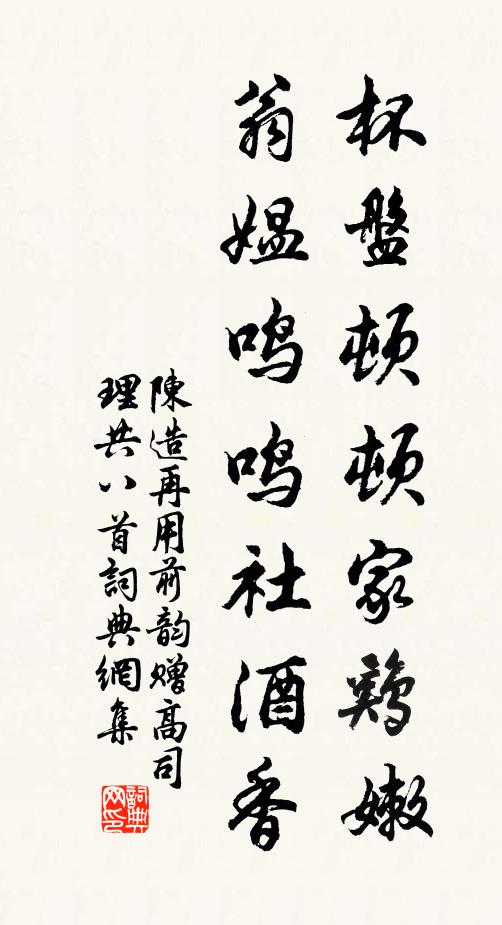 杯盤頓頓家鷄嫩
翁媪呜呜社酒香
陳造再用前韵贈高司
理共八首詞典網集
詞典
网印